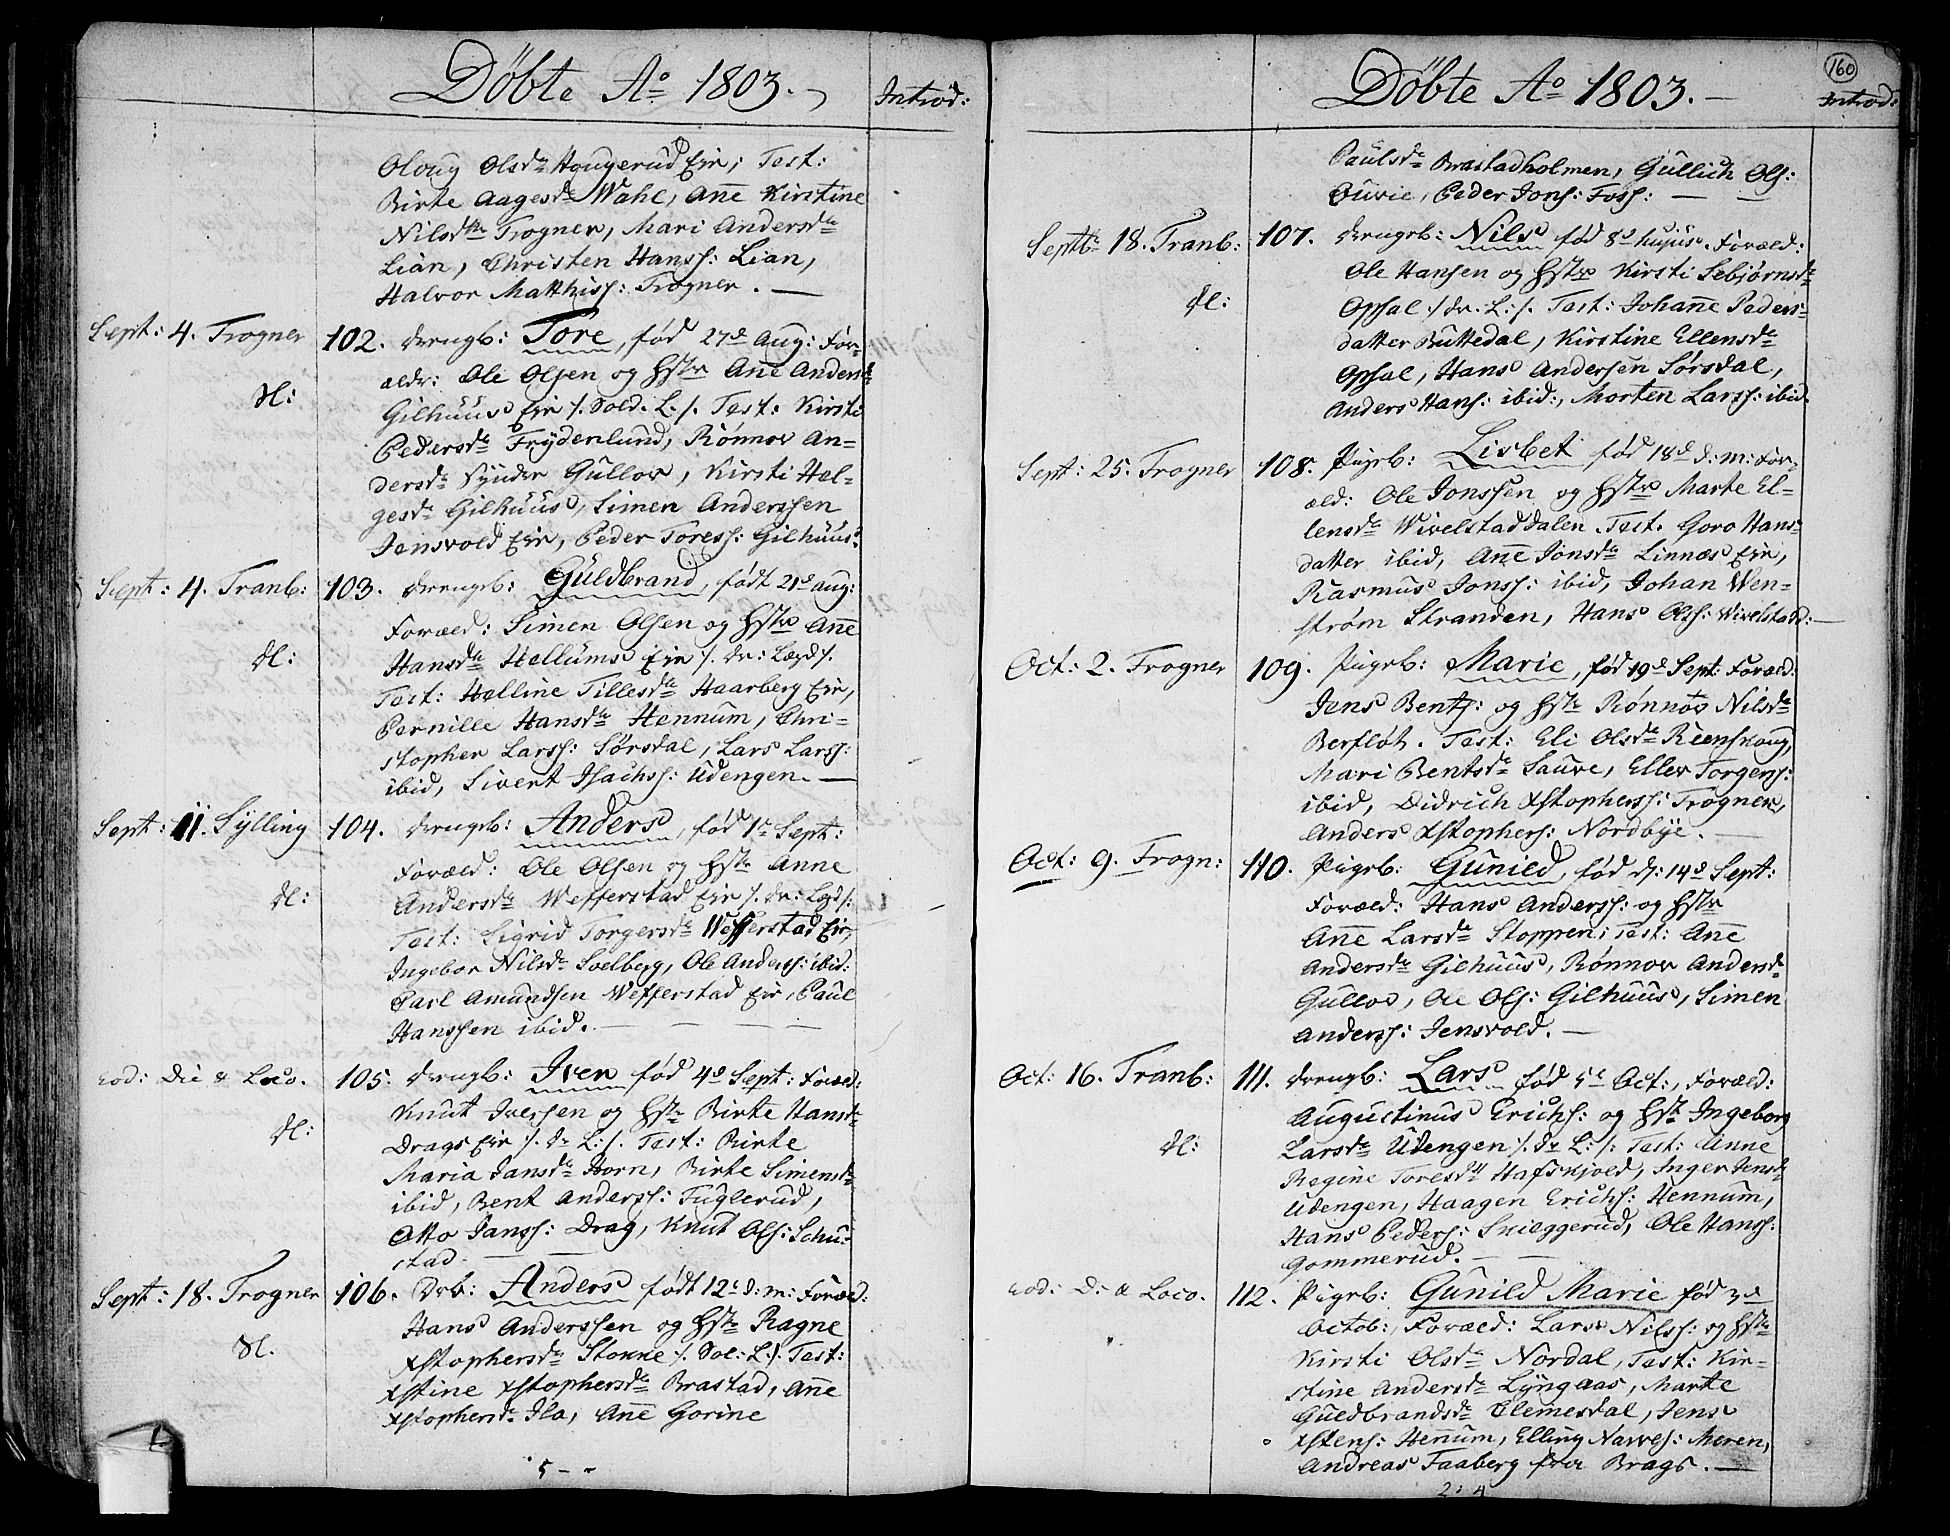 Döbte Aº 1803.
Introd:
Oloug Olsdr Hougerud Eje; Test:
Birte Aagesdr Wahl, Ane Kirstine
Nilsdtr Trogner, Mari Andersdr
Lian, Christen Hanss: Lian,
Halvor Matthiss: Trogner. —
Sept: 4. Trogner 102. drengb: Tore, fød 27d Aug: For-
ældr: Ole Olsen og Hstr Ane Andersdr
dl: Gilhuus Eje /. Sold. L: /. Test: Kirsti
Pedersdr Frydenlund, Rönnov An-
dersdr Gullow, Kirsti Hel-
gesdr Gilhuus, Simen Anderssen
Jensvold Eje, Peder Toress: Gilhuus.
Sept: 4. Tranb: 103. drengb: Guldbrand, født 21d aug:
Foræld: Simen Olsen og Hstr Ane
dl: Hansdr Hellums Eje /. dr: Lægd /.
Test: Helline Tillesdr Haarberg Eje,
Pernille Hansdr Hennum, Chri-
stopher Larss: Sørsdal, Lars Larss:
ibid, Sivert Isachss: Udengen. —
Sept: 11. Sylling 104. drengb: Anders, fød 1e Sept:
Foræld: Ole Olsen og Hstr Anne
dl: Andersdr Wefferstad Eje /. dr: Lægd /:
Test: Sigrid Torgersdr Wefferstad Eje,
Ingebor Nilsdr Solberg, Ole Anderss: ibid:
Carl Amundsen Wefferstad Eje, Paul
Hanssen ibid. —
eod: Die & Loco. 105. drengb: Iver fød 4d Sept: Foræld:
Knut Iverssen og Hstr Birte Hansdr
dl: Drags Eje /. dr L: /. Test: Birte
Maria Jansdr Horn, Birte Simensdr
ibid, Bent Anderss: Fuglerud,
Otto Janss: Drag, Knut Ols: Schu-
stad. —
Sept: 18. Trogner 106. Drb: Anders født 12e d: m: Foræld:
Hans Anderssen og Hstr Ragne
dl. Xstophersdr Stokne /. Sol: L: /. Test:
Xstine Xstophersdr Brastad, Ane
Xstophersdr Ila, Ane Gorine
5 –
160
Döbte Aº 1803. —
Introd:
Paulsdr Brastadholmen, Gullich Ols:
Juvie, Peder Jons: Foss: —
Septbr 18. Tranb: 107. drengb: Nils fød 8d hujus. Foræld:
Ole Hansen og Hstr Kirsti Sebjørnsdr
dl: Opsal /. dr. L: /. Test: Johane Peders-
datter Buttedal, Kirstine Ellensdr
Opsal, Hans Andersen Sørsdal,
Anders Hans: ibid:, Morten Larss: ibid.
Sept: 25. Trogner 108. Pigeb: Lisbet fød 18d d: m: For-
æld: Ole Jonssen og Hstr Marte El-
lensdr Wivelstaddalen. Test. Goro Hans-
datter ibid, Ane Jonsdr Linnæs Eje,
Rasmus Jonss: ibid, Johan Wen-
strøm Stranden, Hans Olss: Wivelstad: —
Oct: 2. Trogner 109. Pigeb: Marie, fød 19d Sept: Foræld:
Jens Bents: og Hstr Rønnov Nilsdr
Berfløt. Test: Eli Olsdr Reenskoug
Mari Bentsdr Saure, Eller Torgers:
ibid, Didrich Xstopherss: Trogner,
Anders Xstophers: Nordbye. —
Oct: 9. Trogn: 110. Pigeb: Gunild, fød d: 14d Sept:
Foræld: Hans Anderss: og Hstr
Ane Larsdr Stoppen; Test: Ane
Andersdr Gilhuus, Rønnov Andersdr
Gullov, Ole Ols: Gilhuus, Simen
Anderss: Jensvold. —
Oct: 16. Tranb: 111. drengb: Lars fød 5e Oct:, Foræld:
Augustinus Erichs: og Hstr Ingeborg
dl: Larsdr Udengen /. dr L: /: Test: Anne
Regine Toresdr Hafskjold, Inger Jensdr
Udengen, Haagen Erichs: Hennum,
Hans Peders: Sneggerud, Ole Hanss:
Gommerud. —
eod: D: & Loco. 112. Pigeb: Gunild Marie fød 3d
Octob:, Foræld: Lars Nilss: og Hstr
Kirsti Olsdr Nordal, Test: Kir-
stine Andersdr Lyngaas, Marte
Guldbrandsdr Clemesdal, Jens
Xstens: Hennum, Elling Narves: Meren,
Andreas Faaberg fra Brags. —
2: 4